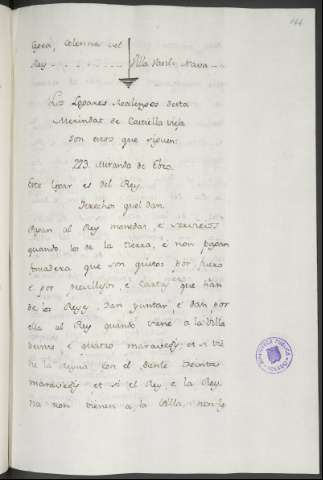 144
Rey
Villa
Los Logares Realengos desta
Merindat de Castiella Vieja
son estos que siguen:
223. Miranda de Ebro.
Este logar es del Rey.
Derechos quel dan.
Pagan al Rey monedas, e servicios
quando los de la tierra, e non pagan
fonsadera que son quitos por fuero
e por previllejio, e Cartas que han
de los Reyes. Dan yantar, e dan por
ella al Rey quando viene a la Villa
e quatro maravedis et si vie
ne la Reyna con el
maravedis et si el Rey, e la Rey
na non vienen a la Villa, non